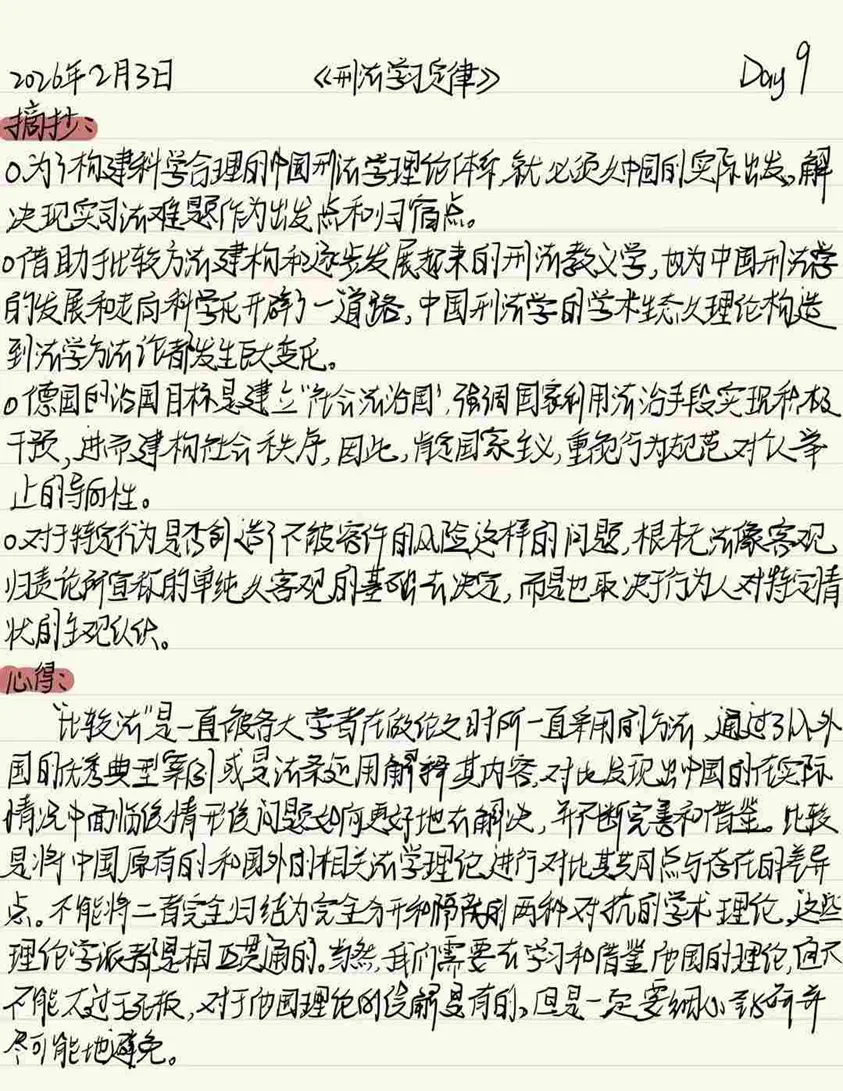 2026年2月3日 《刑法学习定律》 Day 9
摘抄：
o为了构建科学合理的中国刑法学理论体系，就必须从中国的实际出发，解
决现实司法难题作为出发点和归宿点。
o借助于比较方法建构和逐步发展起来的刑法教义学，也为中国刑法学
的发展和走向科学化开辟了一道路，中国刑法学的学术生态从理论构造
到法学方法论都发生巨大变化。
o德国的治国目标是建立"社会法治国"，强调国家利用法治手段实现积极
干预，进而建构社会秩序，因此，肯定国家主义，重视行为规范对人举
止的导向性。
o对于特定行为是否创造了不被容许的风险这样的问题，根本无法像客观
归责论所宣称的单纯从客观的基础去决定，而是也取决于行为人对特定情
状的主观认识。
心得：
"比较法"是一直被各大学者在做论文时所一直采用的方法，通过引入外
国的优秀典型案例或是法条运用解释其内容，对比发现出中国的在实际
情况中面临该情形该问题如何更好地去解决，并不断完善和借鉴。比较
是将中国原有的和国外的相关法学理论进行对比其共同点与存在的差异
点。不能将二者完全归结为完全分开和隔离的两种对抗的学术理论，这些
理论学派都是相互贯通的。当然，我们需要去学习和借鉴他国的理论，但又
不能太过于死板，对于他国理论的误解是有的，但是一定要细心
尽可能地避免。